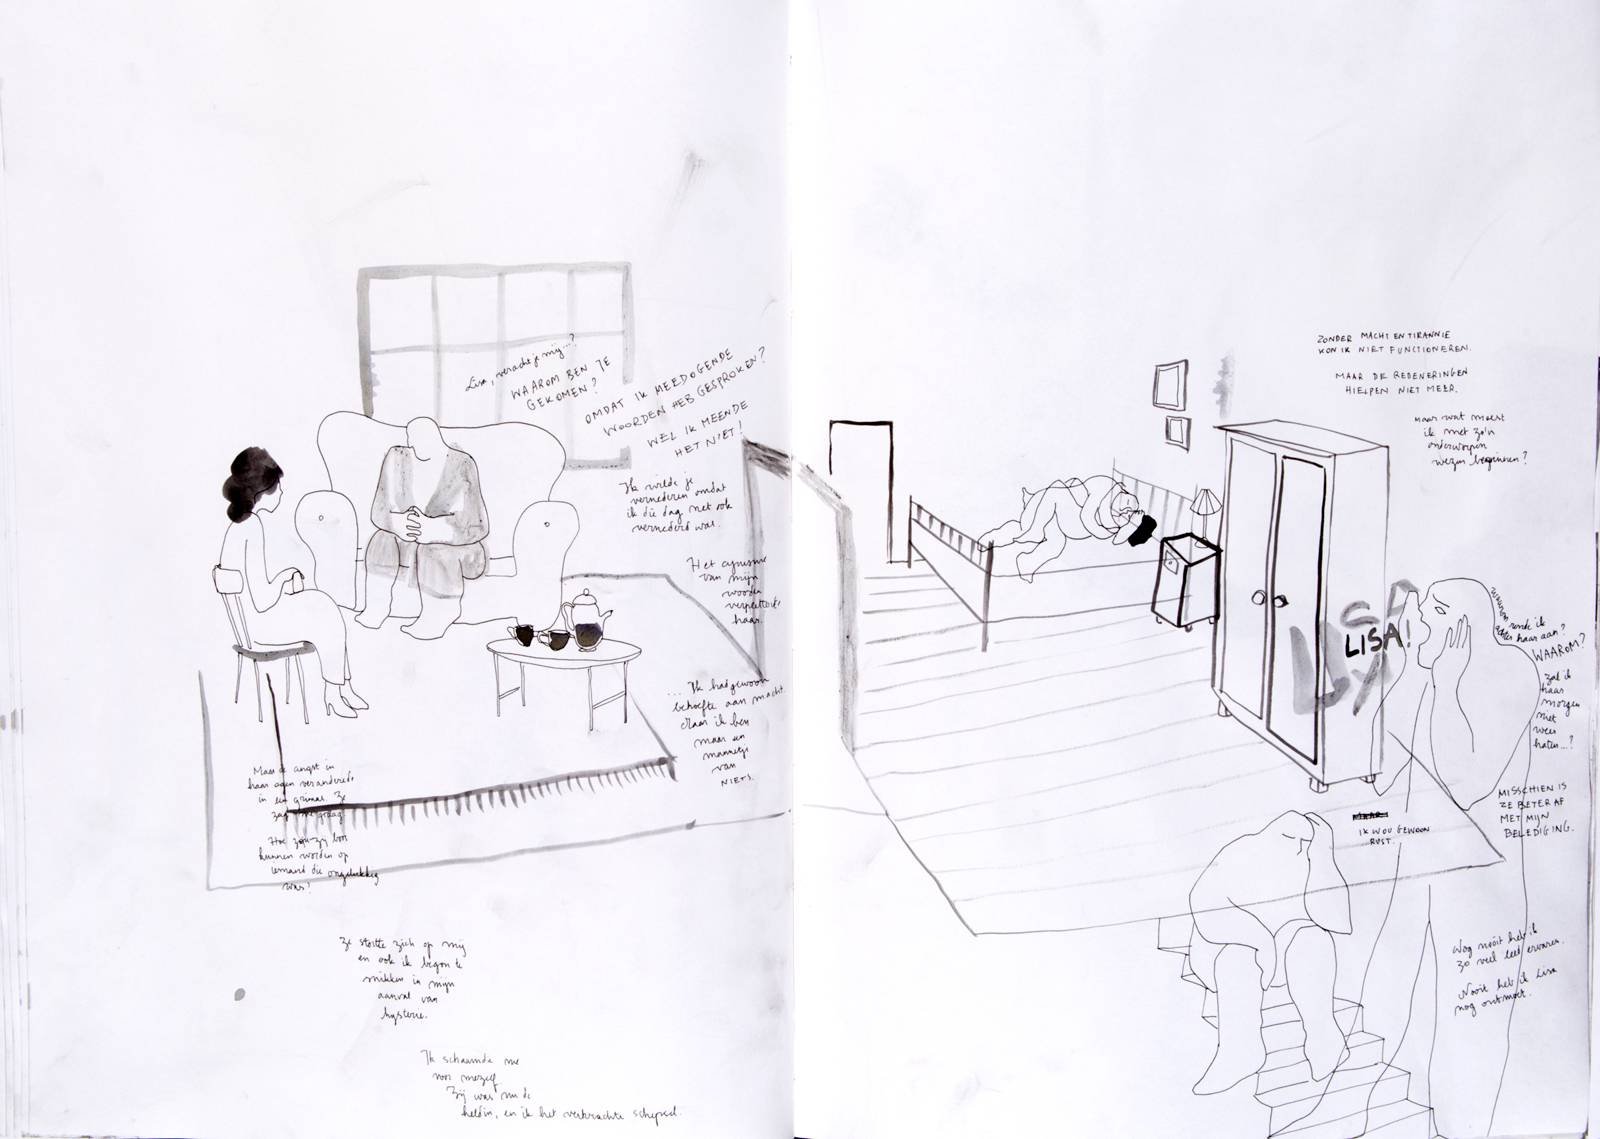 Lisa, veracht je mij...?
WAAROM BEN JE
GEKOMEN?
OMDAT IK MEEDOGENDE
WOORDEN HEB GESPROKEN?
WEL IK MEENDE
HET NIET!
Ik wilde je
vernederen omdat
ik die dag net ook
vernederd was.
Het cynisme
van mijn
woorden
verpletterde
haar.
... Ik had gewoon
behoefte aan macht.
Daar ik ben
maar een
mannetje
van
NIETS.
Maar de angst in
haar ogen veranderde
in een grimas. Ze
zag me graag.
Hoe zou zij boos
kunnen worden op
iemand die ongelukkig
was?
Ze stortte zich op mij
en ook ik begon te
snikken in mijn
aanval van
hysterie.
Ik schaamde me
voor mezelf.
Zij was nu de
heldin, en ik het verkrachte schepsel.
ZONDER MACHT EN TIRANNIE
KON IK NIET FUNCTIONEREN.
MAAR DE REDENERINGEN
HIELPEN NIET MEER.
Maar wat moest
ik met zo'n
onderworpen
wezen beginnen?
LISA!
LISA!
Waarom rende ik
achter haar aan?
WAAROM?
Zal ik
haar
morgen
niet
weer
haten...?
MISSCHIEN IS
ZE BETER AF
MET MIJN
BELEDIGING.
IK WOU GEWOON
RUST.
Nog nooit heb ik
zo veel leed ervaren.
Nooit heb ik Lisa
nog ontmoet.